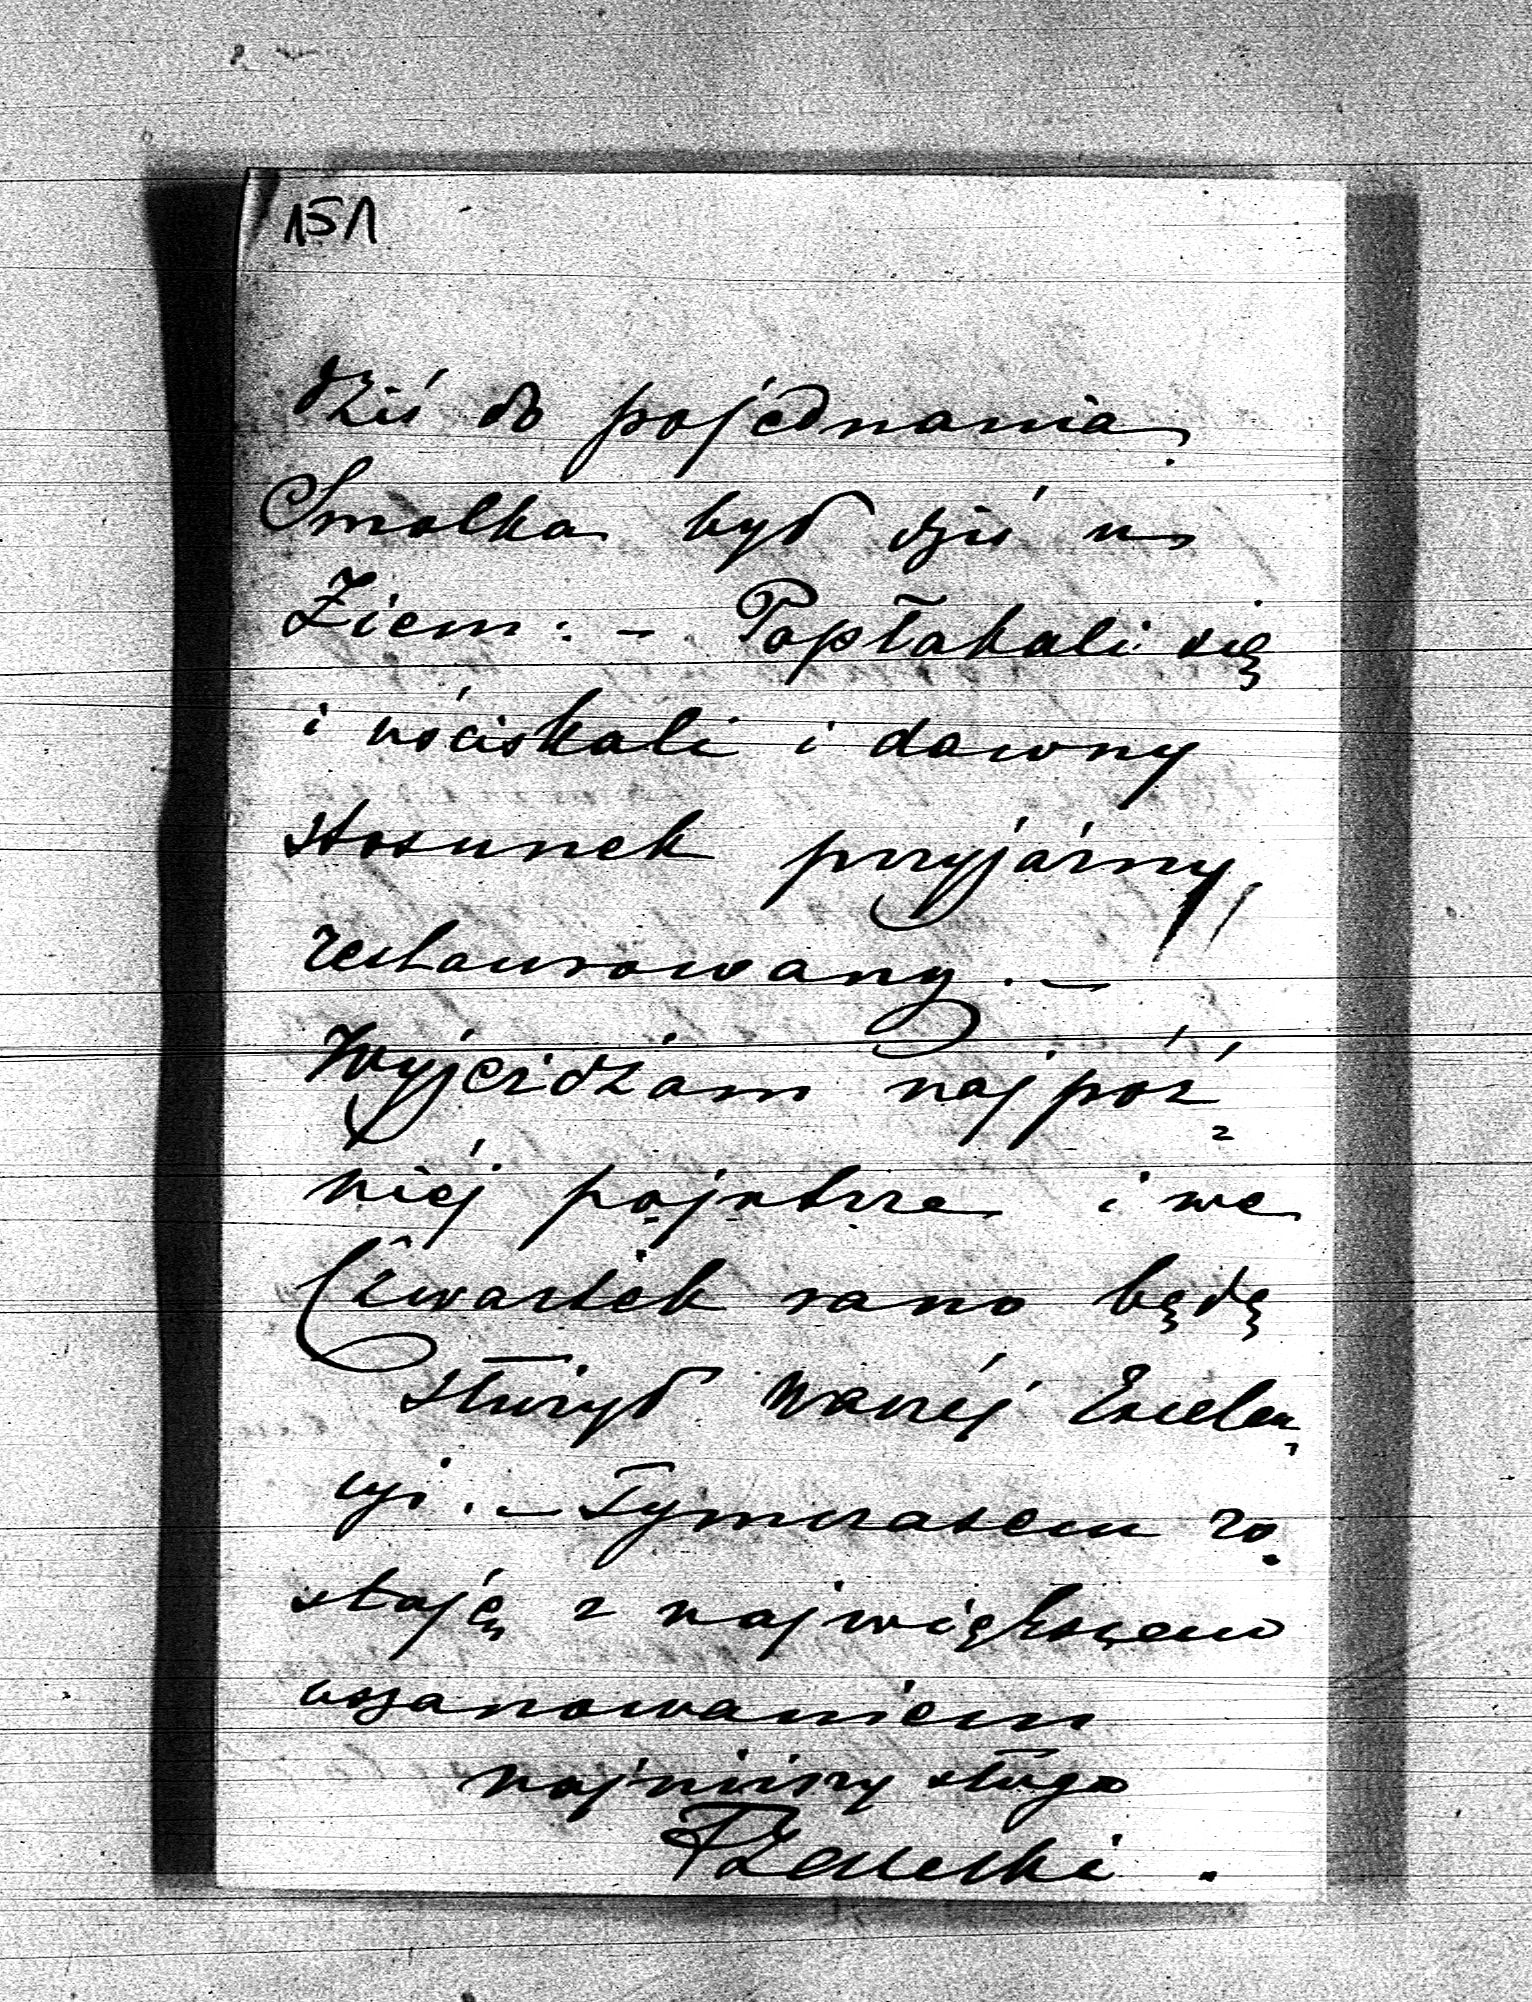 151
dziś do pojednania.
Smolka był dziś u
Ziem: – Popłakali się
i uściskali i dawny
stosunek przyjázny
restaurowany. –
Wyjeżdżám najpóź
niéj pojutrze i we
Czwartek rano będę
służył Waszéj Excelen
cyi. – Tymczasem zo
staję z największem
uszanowaniem
najniższy sługa